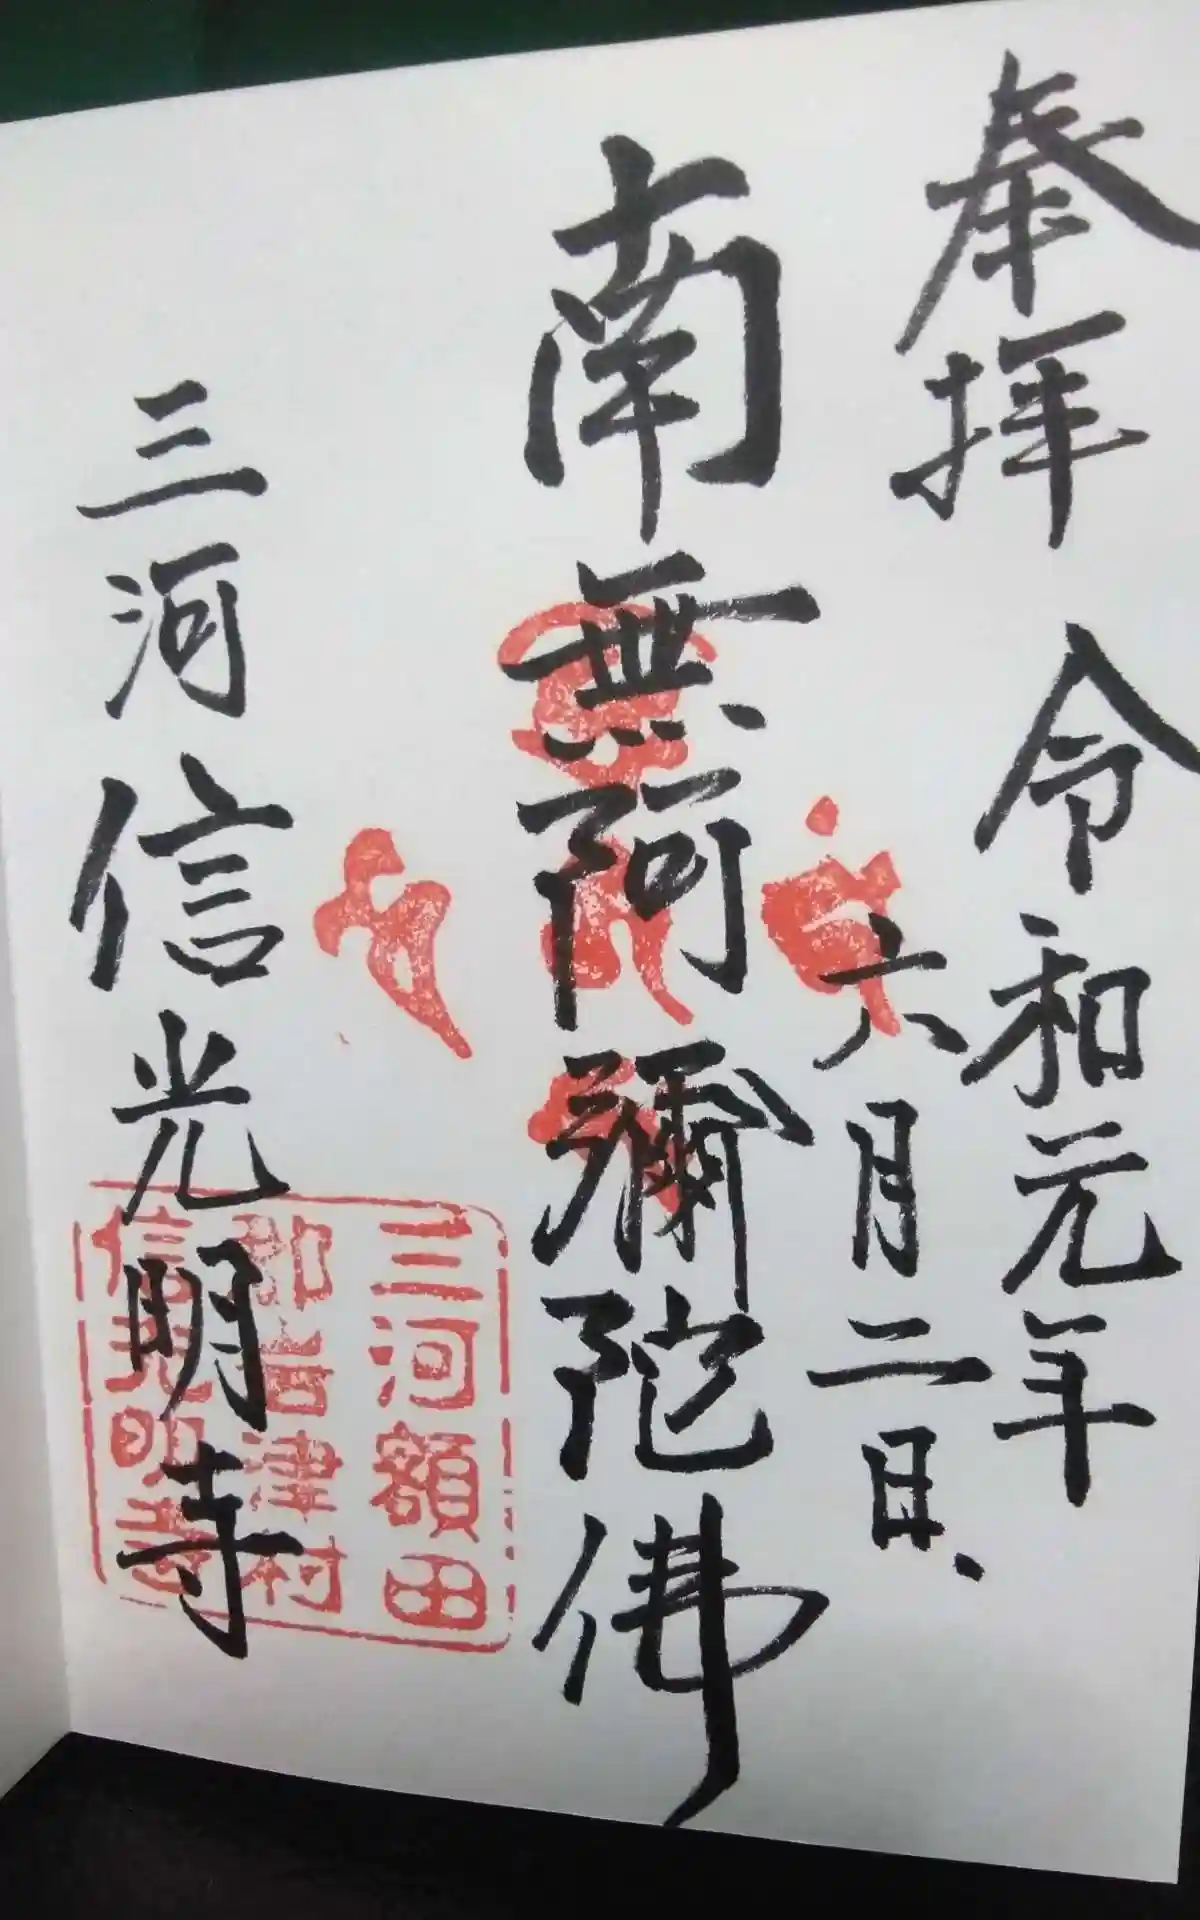 奉拝
令和元年
六月二日
南無阿彌陀佛
三河信光明寺
三河額田
郡岩津村
信光明寺